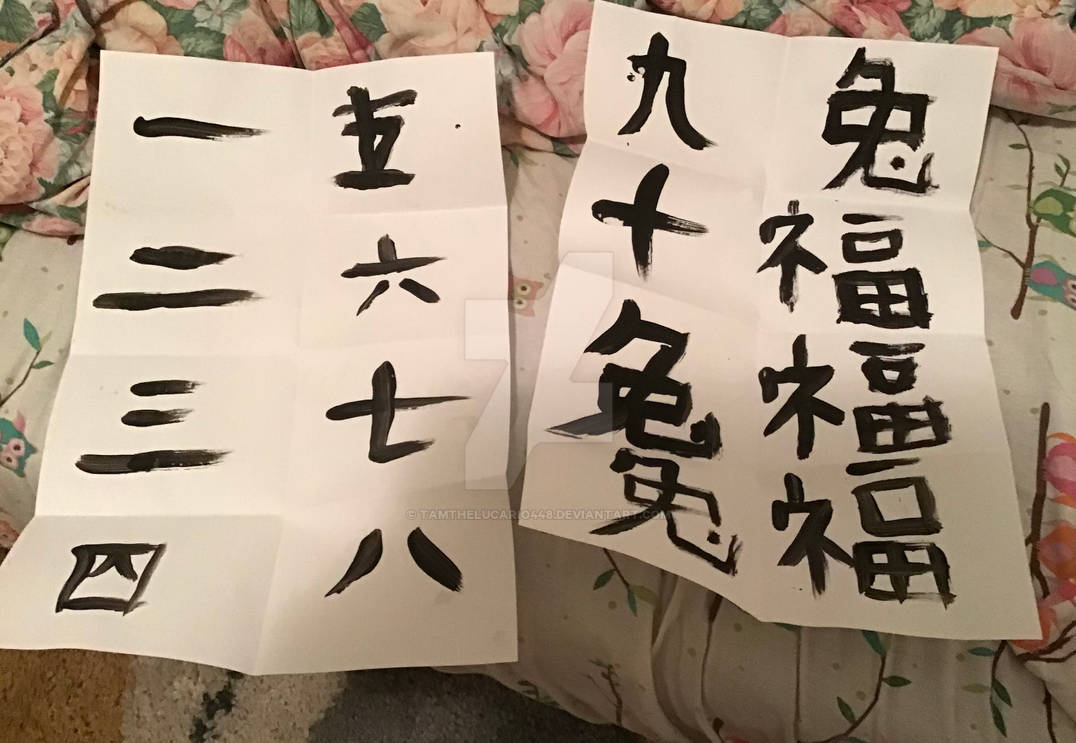 一
二
三
四
五
六
七
八
九
十
兔
兔
兔
福
福
福
© TAMTHELUCARIO448.DEVIANTART.COM